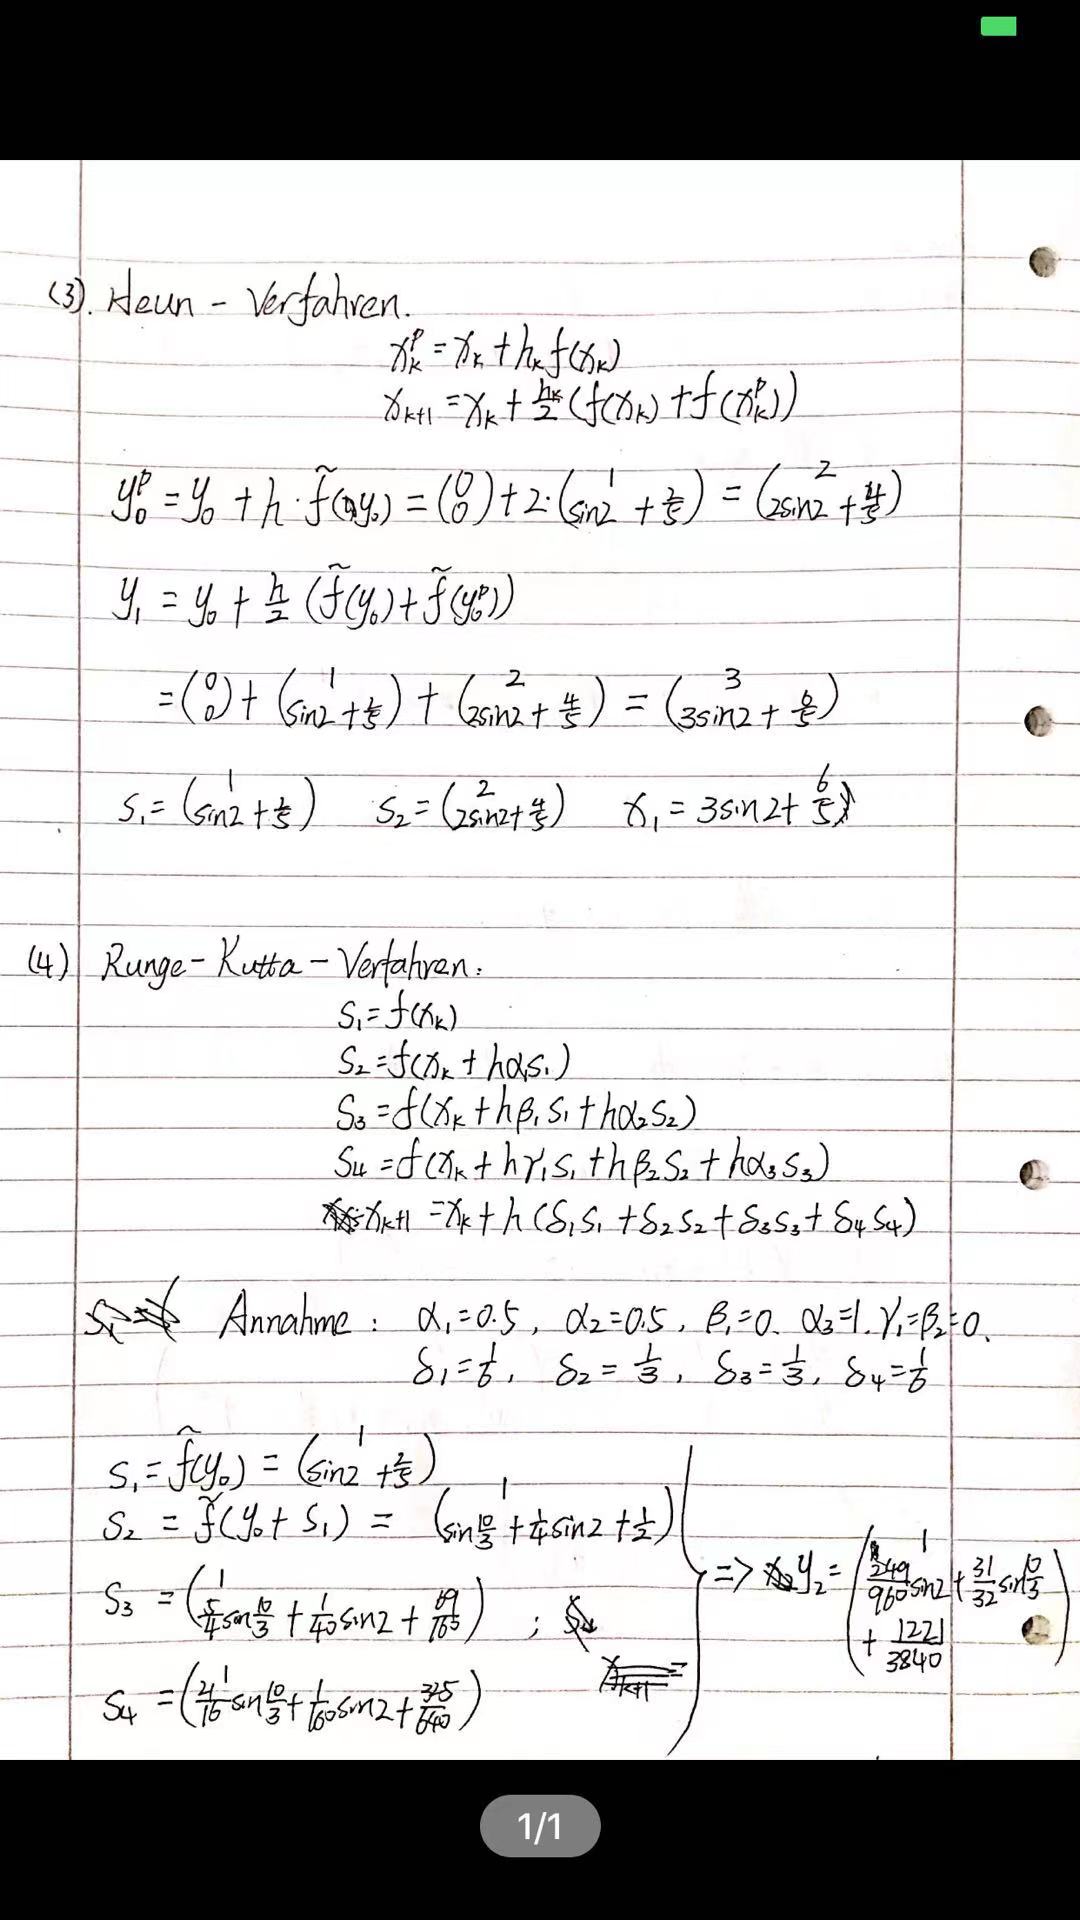 (3). Heun - Verfahren.
x_k^p = x_k + h_k f(x_k)
x_{k+1} = x_k + h_k/2 (f(x_k) + f(x_k^p))
y_0^p = y_0 + h · f̃(y_0) = (0 0) + 2·(1 sin2 + 2/5) = (2 2sin2 + 4/5)
y_1 = y_0 + h/2 (f̃(y_0) + f̃(y_0^p))
= (0 0) + (1 sin2 + 2/5) + (2 2sin2 + 4/5) = (3 3sin2 + 6/5)
S_1 = (1 sin2 + 2/5) S_2 = (2 2sin2 + 4/5) x_1 = 3sin2 + 6/5
(4) Runge-Kutta-Verfahren:
S_1 = f(x_k)
S_2 = f(x_k + hα_1S_1)
S_3 = f(x_k + hβ_1S_1 + hα_2S_2)
S_4 = f(x_k + hγ_1S_1 + hβ_2S_2 + hα_3S_3)
x_{k+1} = x_k + h(δ_1S_1 + δ_2S_2 + δ_3S_3 + δ_4S_4)
Annahme: α_1=0.5, α_2=0.5, β_1=0. α_3=1. γ_1=β_2=0.
δ_1=1/6, δ_2=1/3, δ_3=1/3, δ_4=1/6
S_1 = f̃(y_0) = (1 sin2 + 2/5)
S_2 = f̃(y_0 + S_1) = (1 sin10/3 + 1/4sin2 + 1/2)
=> y_2 = (1 249/960sin2 + 31/32sin10/3 + 1221/3840)
S_3 = (1 5/4sin10/3 + 1/40sin2 + ) ;
S_4 = (1 21/16sin10/3 + 1/160sin2 + 325/640)
1/1